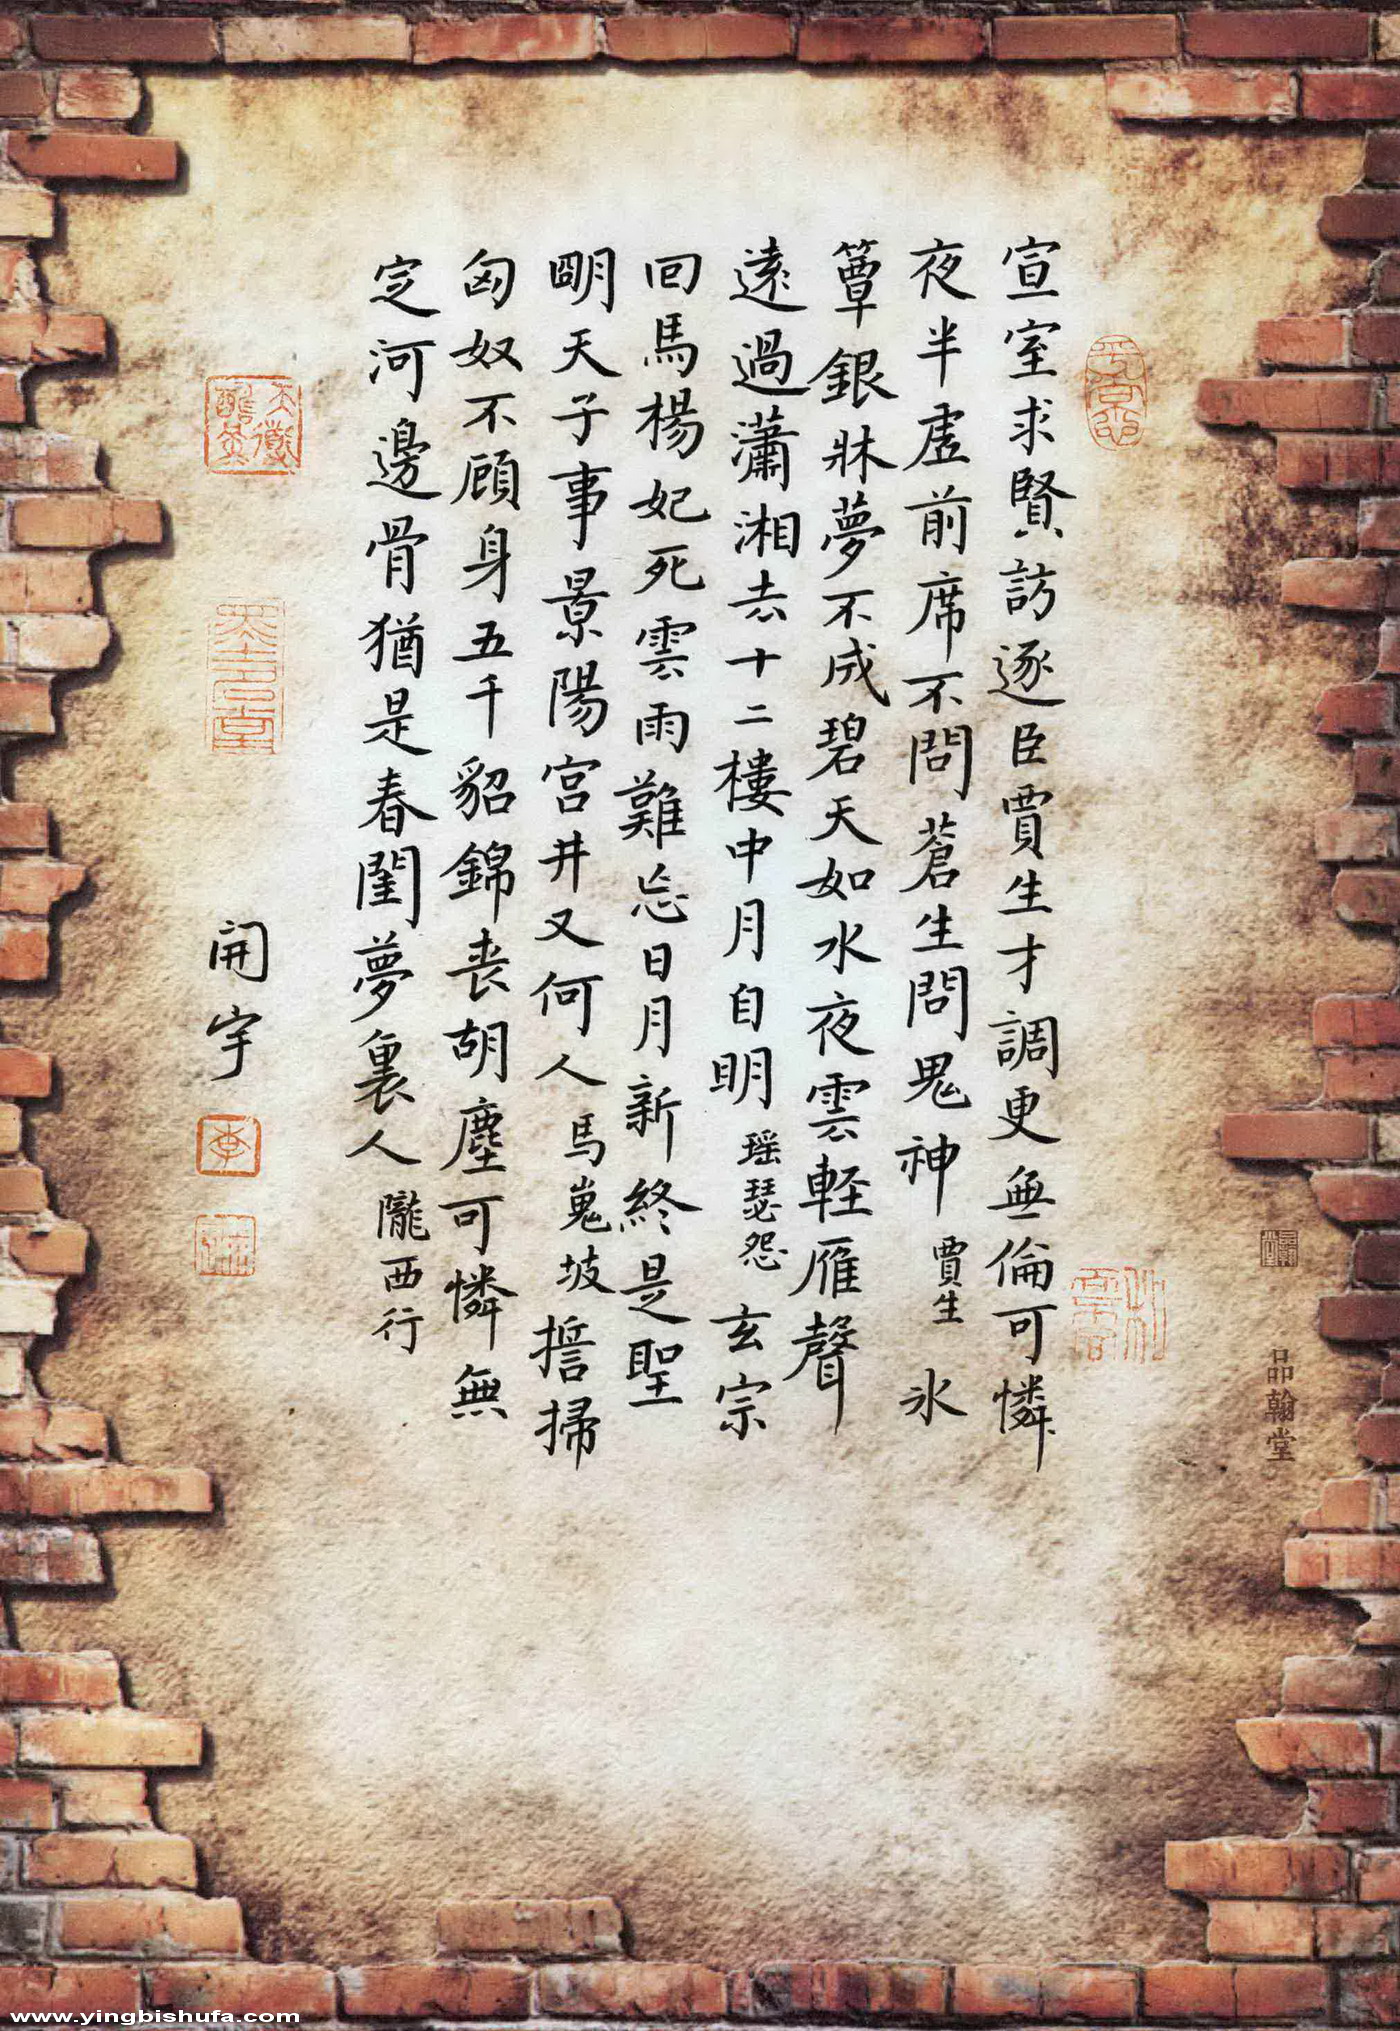 宣室求賢訪逐臣賈生才調更無倫可憐
夜半虛前席不問蒼生問鬼神 賈生 氷
簟銀牀夢不成碧天如水夜雲軽雁聲
遠過瀟湘去十二樓中月自明 瑶瑟怨 玄宗
回馬楊妃死雲雨難忘日月新終是聖
明天子事景陽宮井又何人 馬嵬坡 誓掃
匈奴不顧身五千貂錦喪胡塵可憐無
定河邊骨猶是春閨夢裏人 隴西行
開宇
李
品翰堂
www.yingbishufa.com